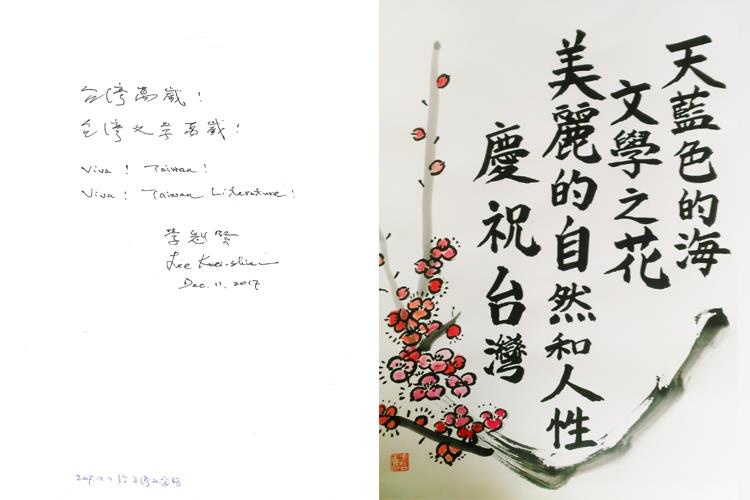 台灣萬歲！
台灣文學萬歲！
Viva! Taiwan!
Viva! Taiwan Literature!
李魁賢
Lee Kuei-shien
Dec. 11. 2017
天藍色的海
文學之花
美麗的自然和人性
慶祝台灣